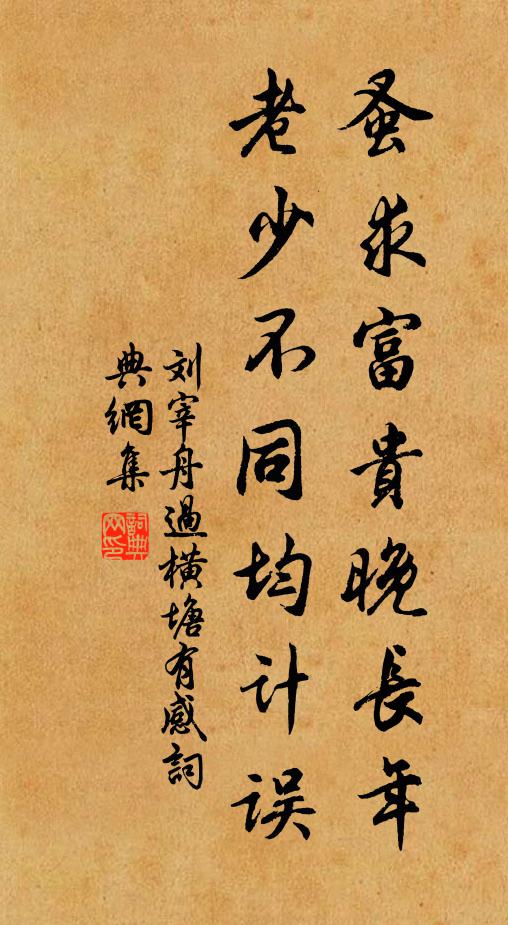 蚤求富貴晚長年
老少不同均计误
刘宰舟過横塘有感詞
典網集
詞典
网印